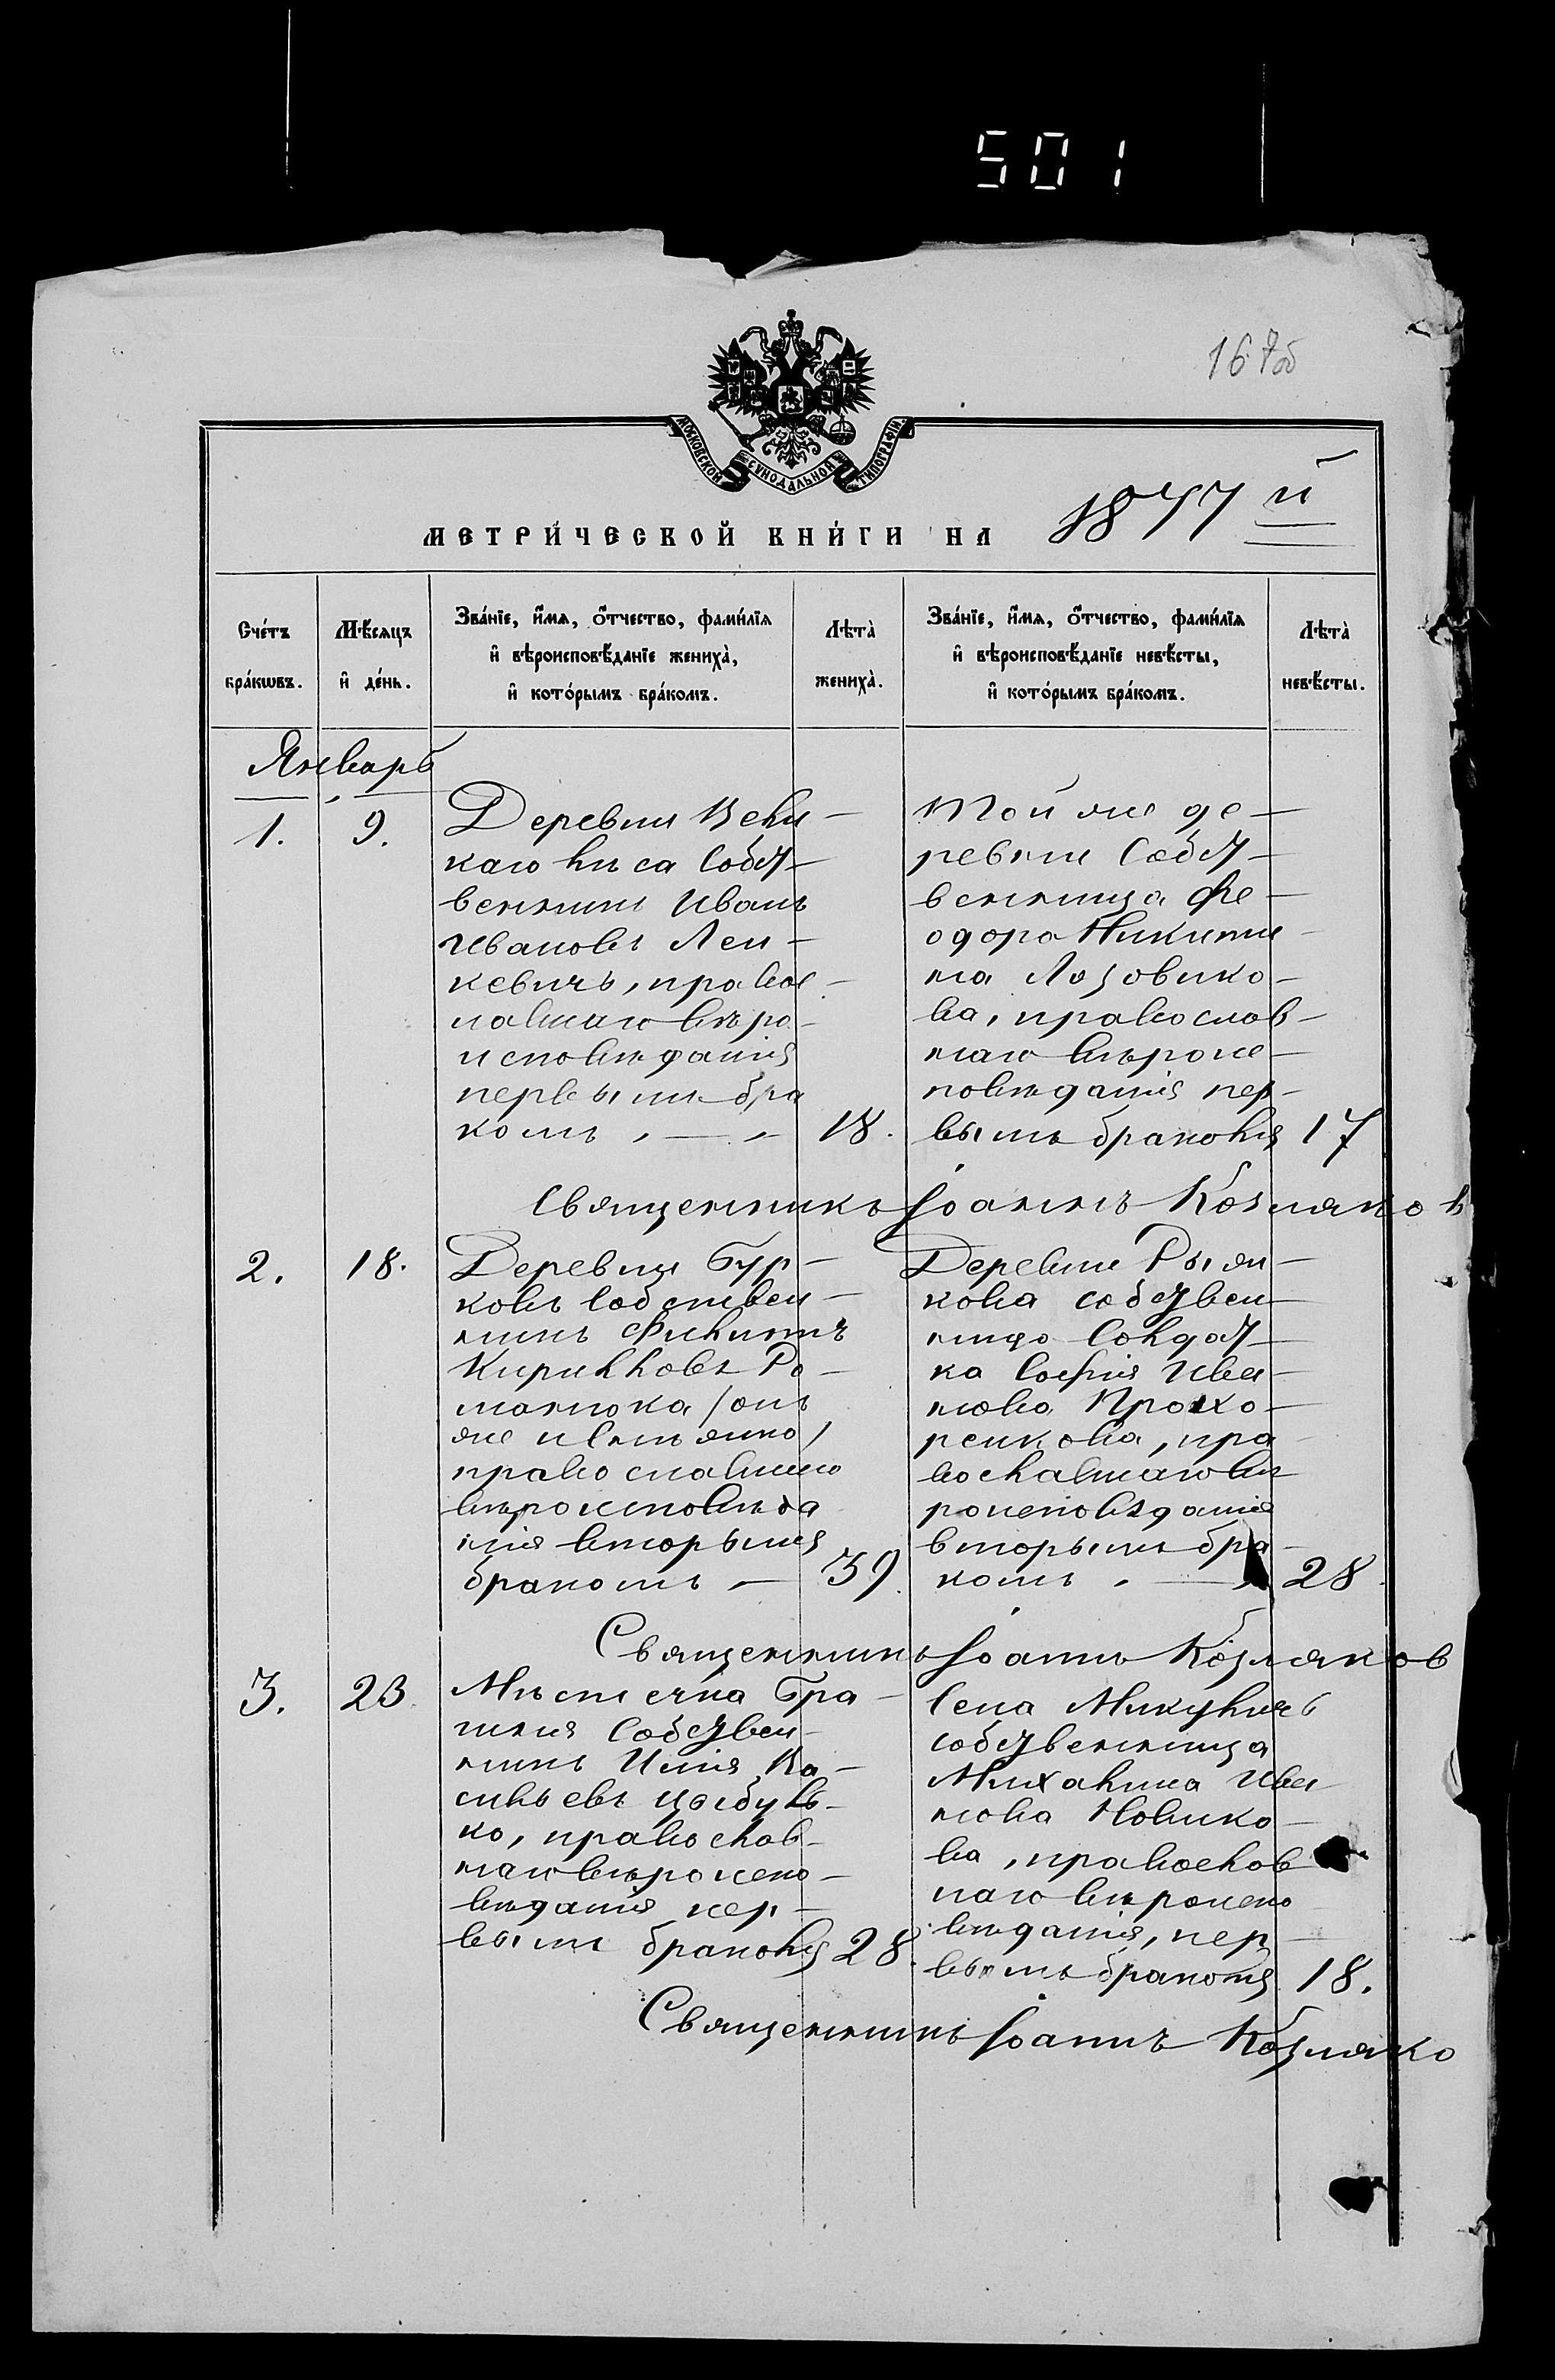 501
167об
МОСКОВСКОЙ СѴНОДАЛЬНОЙ ТИПОГРАФІИ
МЕТРИ́ЧЕСКОЙ КНИ́ГИ НА 1877 й
Счétъ бра́кωвъ.
Мѣ́сяцъ и҆ де́нь.
Зва́нїе, и҆́мѧ, ѻ҆́тчество, фами́лїѧ
и҆ вѣроисповѣ́данїе женихà,
и҆ кото́рымъ бра́комъ.
Лѣтà женихà.
Зва́нїе, и҆́мѧ, ѻ҆́тчество, фами́лїѧ
и҆ вѣроисповѣ́данїе невѣ́сты,
и҆ кото́рымъ бра́комъ.
Лѣтà невѣ́сты.
Январь
1. 9.
Деревни Вели-
каго лѣса Собст-
венникъ Иванъ
Ивановъ Лен-
кевичъ, правос-
лавнаго вѣро-
исповѣданія
первымъ бра
комъ 18.
Той же де-
ревни Собст-
венница Фе-
одора Никити-
на Лозовико-
ва, православ-
наго вѣроис-
повѣданія пер-
вымъ бракомъ 17
Священникъ Іоаннъ Козляков
2. 18.
Деревни Бур-
ковъ Собствен-
никъ Филиппъ
Кирилловъ Ро-
манюка /онъ
же Ивтьянко/
православнаго
вѣроисповѣда
нія вторымъ
бракомъ 39.
Деревни
кова собствен-
ница Солдат-
ка Софія Ива-
нова Прохо-
ренкова, пра
вославнаго вѣ
роисповѣданія
вторымъ бра-
комъ 28.
Священникъ Іоаннъ Козляков
3. 23.
Мѣстечка Бра-
гиня Собствен-
никъ Илія Ва-
сильевъ Цыбуль-
ко, православ-
наго вѣроиспо-
вѣданія пер-
вымъ бракомъ 28.
Села Микуличъ
собственница
Михалина Ива-
нова Новико-
ва, православ
наго вѣроиспо
вѣданія, пер-
вымъ бракомъ 18.
Священникъ Іоаннъ Козляко